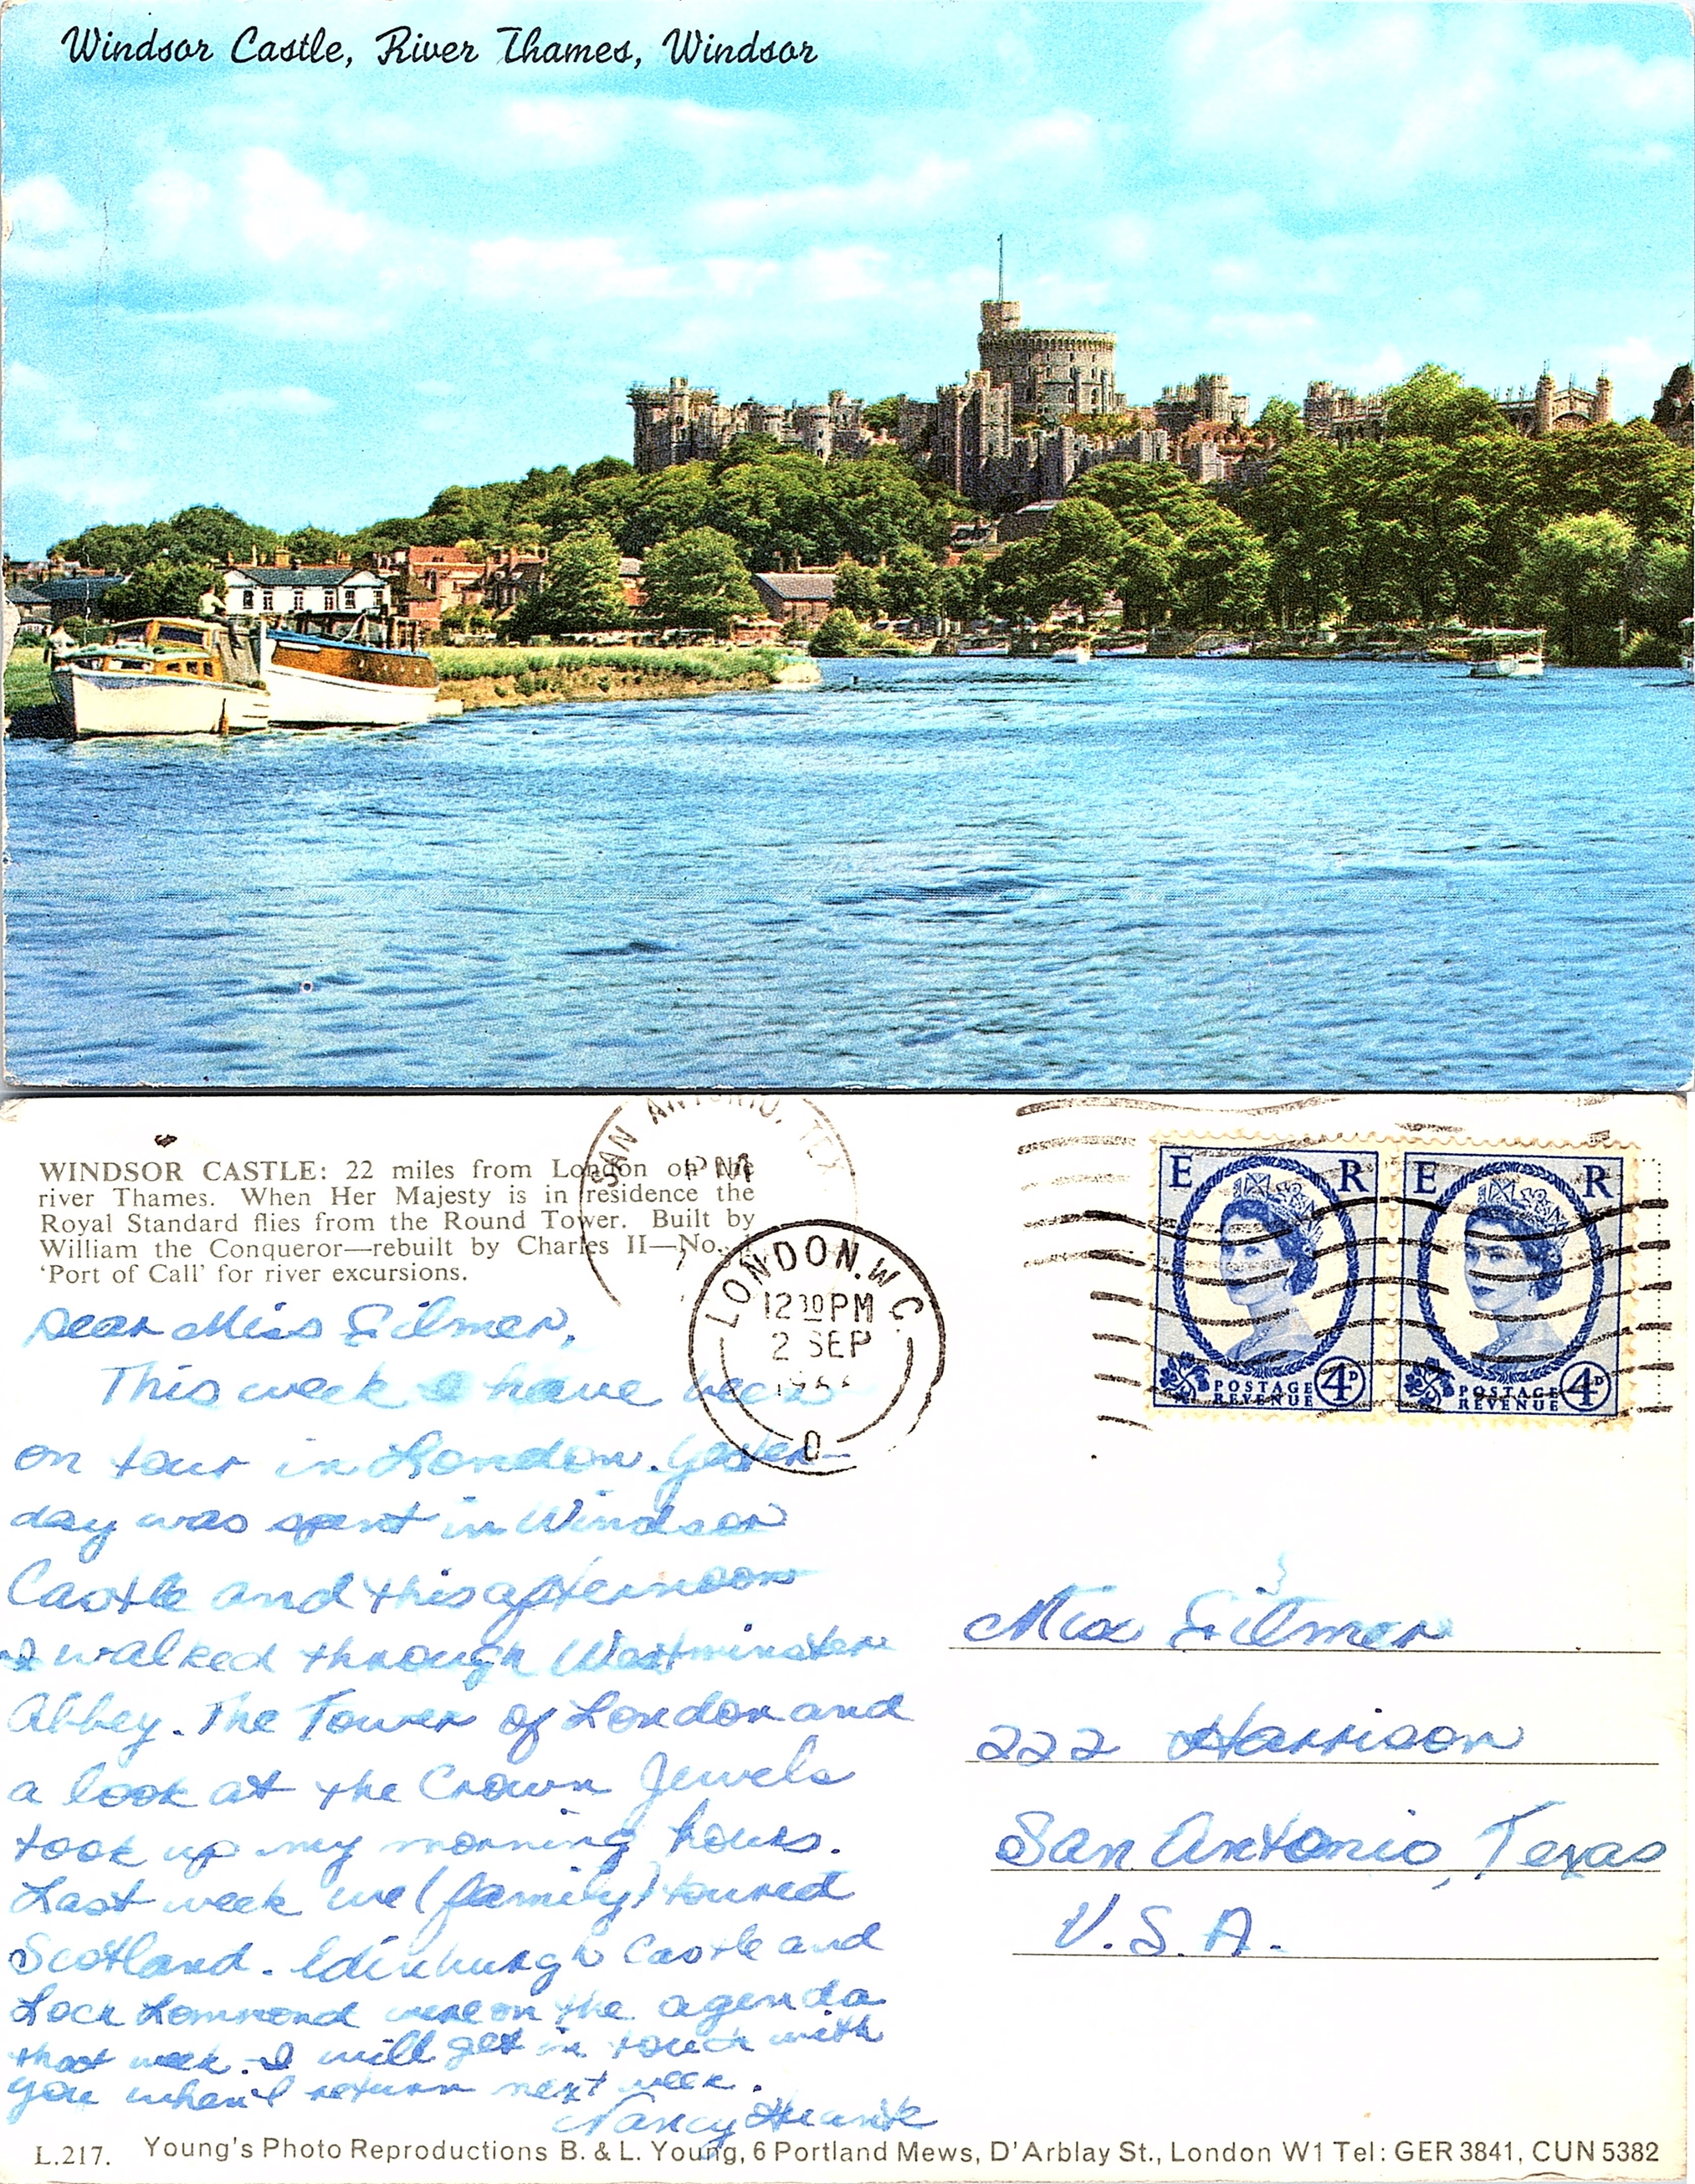 Windsor Castle, River Thames, Windsor
WINDSOR CASTLE: 22 miles from London on the
river Thames. When Her Majesty is in residence the
Royal Standard flies from the Round Tower. Built by
William the Conqueror—rebuilt by Charles II—No. 1
'Port of Call' for river excursions.
SAN ANTONIO, TEX
PM
LONDON. W.C.
12 30 PM
2 SEP
O
E R
POSTAGE
REVENUE
4D
E R
POSTAGE
REVENUE
4D
Dear Miss Gilmer,
This week I have been
on tour in London. Yester-
day was spent in Windsor
Castle and this afternoon
I walked through Westminster
Abbey. The Tower of London and
a look at the Crown Jewels
took up my morning hours.
Last week we (family) toured
Scotland. Edinburgh Castle and
Loch Lommond were on the agenda
that week. I will get in touch with
you when I return next week.
Nancy
Miss Gilmer
222 Harrison
San Antonio, Texas
U.S.A.
L.217. Young's Photo Reproductions B. & L. Young, 6 Portland Mews, D'Arblay St., London W1 Tel: GER 3841, CUN 5382